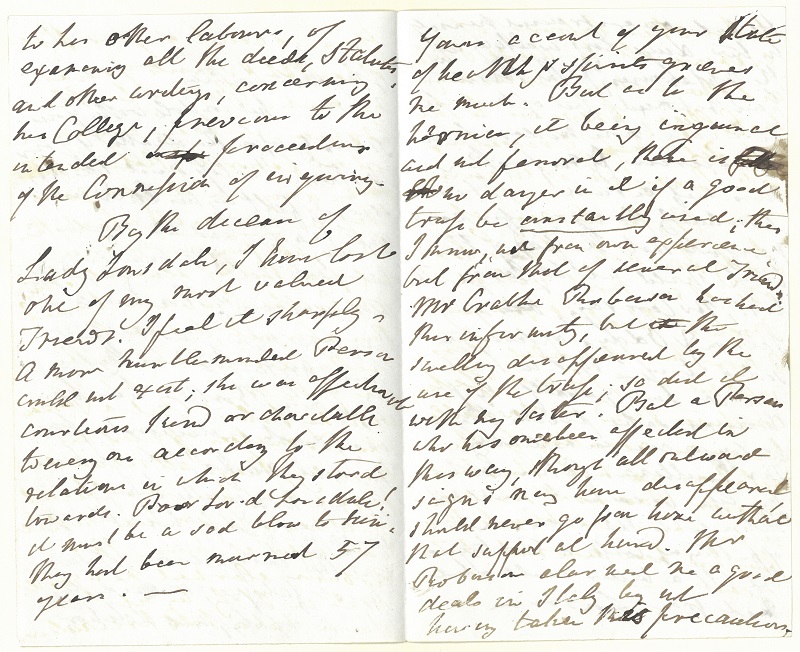 to his other labours, of
examining all the deeds, Statutes,
and other writings, concerning
his College, previous to the
intended proceedings
of the Commission of inquiry.
By the decease of
Lady Lonsdale, I have lost
one of my most valued
Friends. I feel it sharply -
A more humble-minded Person
could not exist; she was affectionate
courteous kind or charitable
to every one according to the
relations in which they stood
towards. Poor Lord Lonsdale!
it must be a sad blow to him.
They had been married 57
years. —
Your account of your State
of health & spirits grieves
me much. But as to the
hernia, it being inguinal
and not femoral, there is
no danger in it if a good
truss be constantly used; this
I know, not from own experience
but from that of several Friends.
Mr Crabbe Robinson had had
this infirmity, but the
swelling disappeared by the
use of the truss; so did it
with my Sister. But a Person
who has once been affected in
this way, though all outward
signs may have disappeared
should never go from home without
that support at hand. Mr
Robinson alarmed me a good
deal in Italy by not
having taken this precaution.